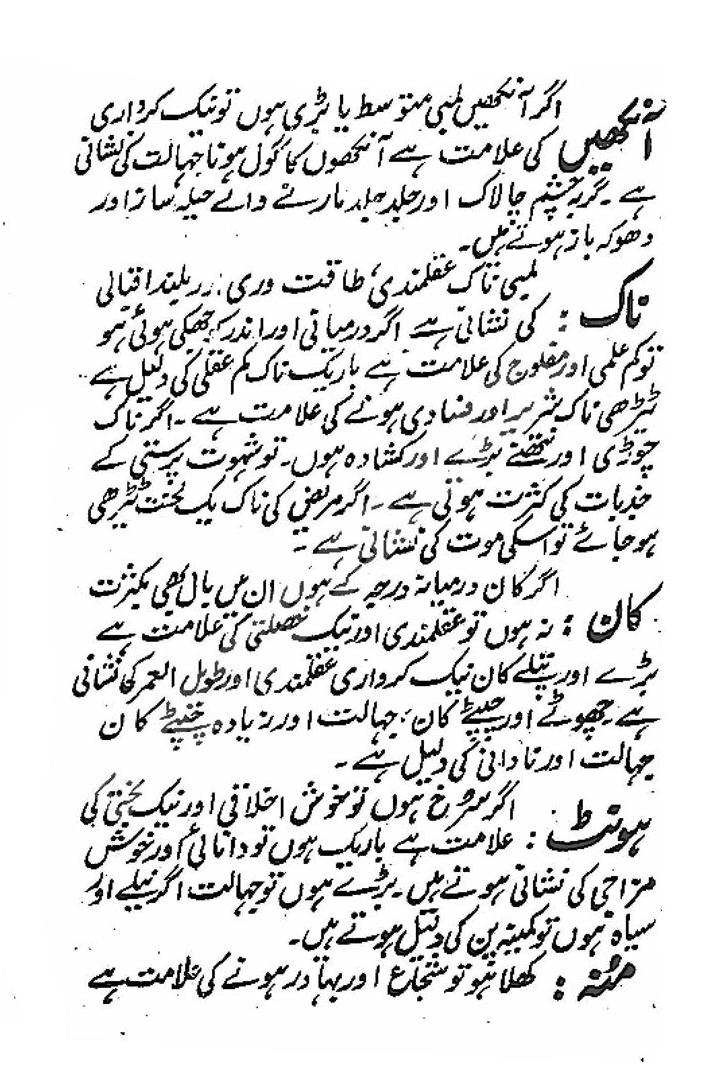 اگر آنکھیں لمبی متوسط یا بڑی ہوں تو نیک کرداری
آنکھیں کی علامت ہے آنکھوں کا گول ہونا جہالت کی نشانی
ہے۔ گربہ چشم چالاک اور جلد جلد مارنے والے حیلہ ساز اور
دھوکہ باز ہوتے ہیں۔
لمبی ناک عقلمندی، طاقت وری، اور بلند اقبالی
ناک : کی نشانی ہے اگر درمیانی اور اندر کو جھکی ہوئی ہو
تو کم علمی اور مفلوج کی علامت ہے باریک ناک کم عقلی کی دلیل ہے
ٹیڑھی ناک شریر اور فسادی ہونے کی علامت ہے۔ اگر ناک
چوڑی اور نتھنے بڑے اور کشادہ ہوں۔ تو شہوت پرستی کے
جذبات کی کثرت ہوتی ہے۔ اگر مریض کی ناک یک لخت ٹیڑھی
ہو جائے تو اسکی موت کی نشانی ہے۔
اگر کان درمیانہ درجہ کے ہوں ان میں بال بھی بکثرت
کان : نہ ہوں تو عقلمندی اور نیک خصلتی کی علامت ہے
بڑے اور پتلے کان نیک کرداری عقلمندی اور طول العمر کی نشانی
ہے۔ چھوٹے اور چپٹے کان، جہالت اور زیادہ چپٹے کان
جہالت اور نادانی کی دلیل ہے۔
اگر سرخ ہوں تو خوش اخلاقی اور نیک بختی کی
ہونٹ : علامت ہے باریک ہوں تو دانائی اور خوش
مزاجی کی نشانی ہوتے ہیں۔ بڑے ہوں تو جہالت اگر نیلے اور
سیاہ ہوں تو کمینہ پن کی دلیل ہوتے ہیں۔
مُنہ : کھلا ہو تو شجاع اور بہادر ہونے کی علامت ہے